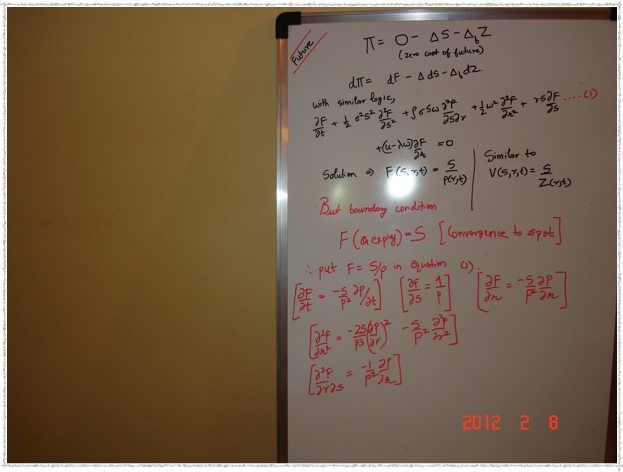 Future
π = 0 - ΔS - Δ₁Z
(zero cost of future)
dπ = dF - Δ ds - Δ₁dZ.
with similar logic,
∂F/∂t + 1/2 σ²s² ∂²F/∂s² + ρσSω ∂²F/∂s∂r + 1/2 ω² ∂²F/∂r² + rs ∂F/∂s ....(1)
+(u-λω) ∂F/∂r = 0
Solution ⇒ F(s,r,t) = S/P(r,t)
Similar to
V(s,r,t) = S/Z(r,t)
But boundary condition
F(@ expiry) = S [Convergence to spot]
∴ put F = S/p in equation (1).
[∂F/∂t = -S/P² ∂P/∂t] [∂F/∂s = 1/P] [∂F/∂r = -S/P² ∂P/∂r]
[∂²F/∂r² = -2S/P3 (∂P/∂r)² -S/P² ∂²P/∂r²]
[∂²F/∂r∂s = -1/P² ∂P/∂r]
2012 2 8